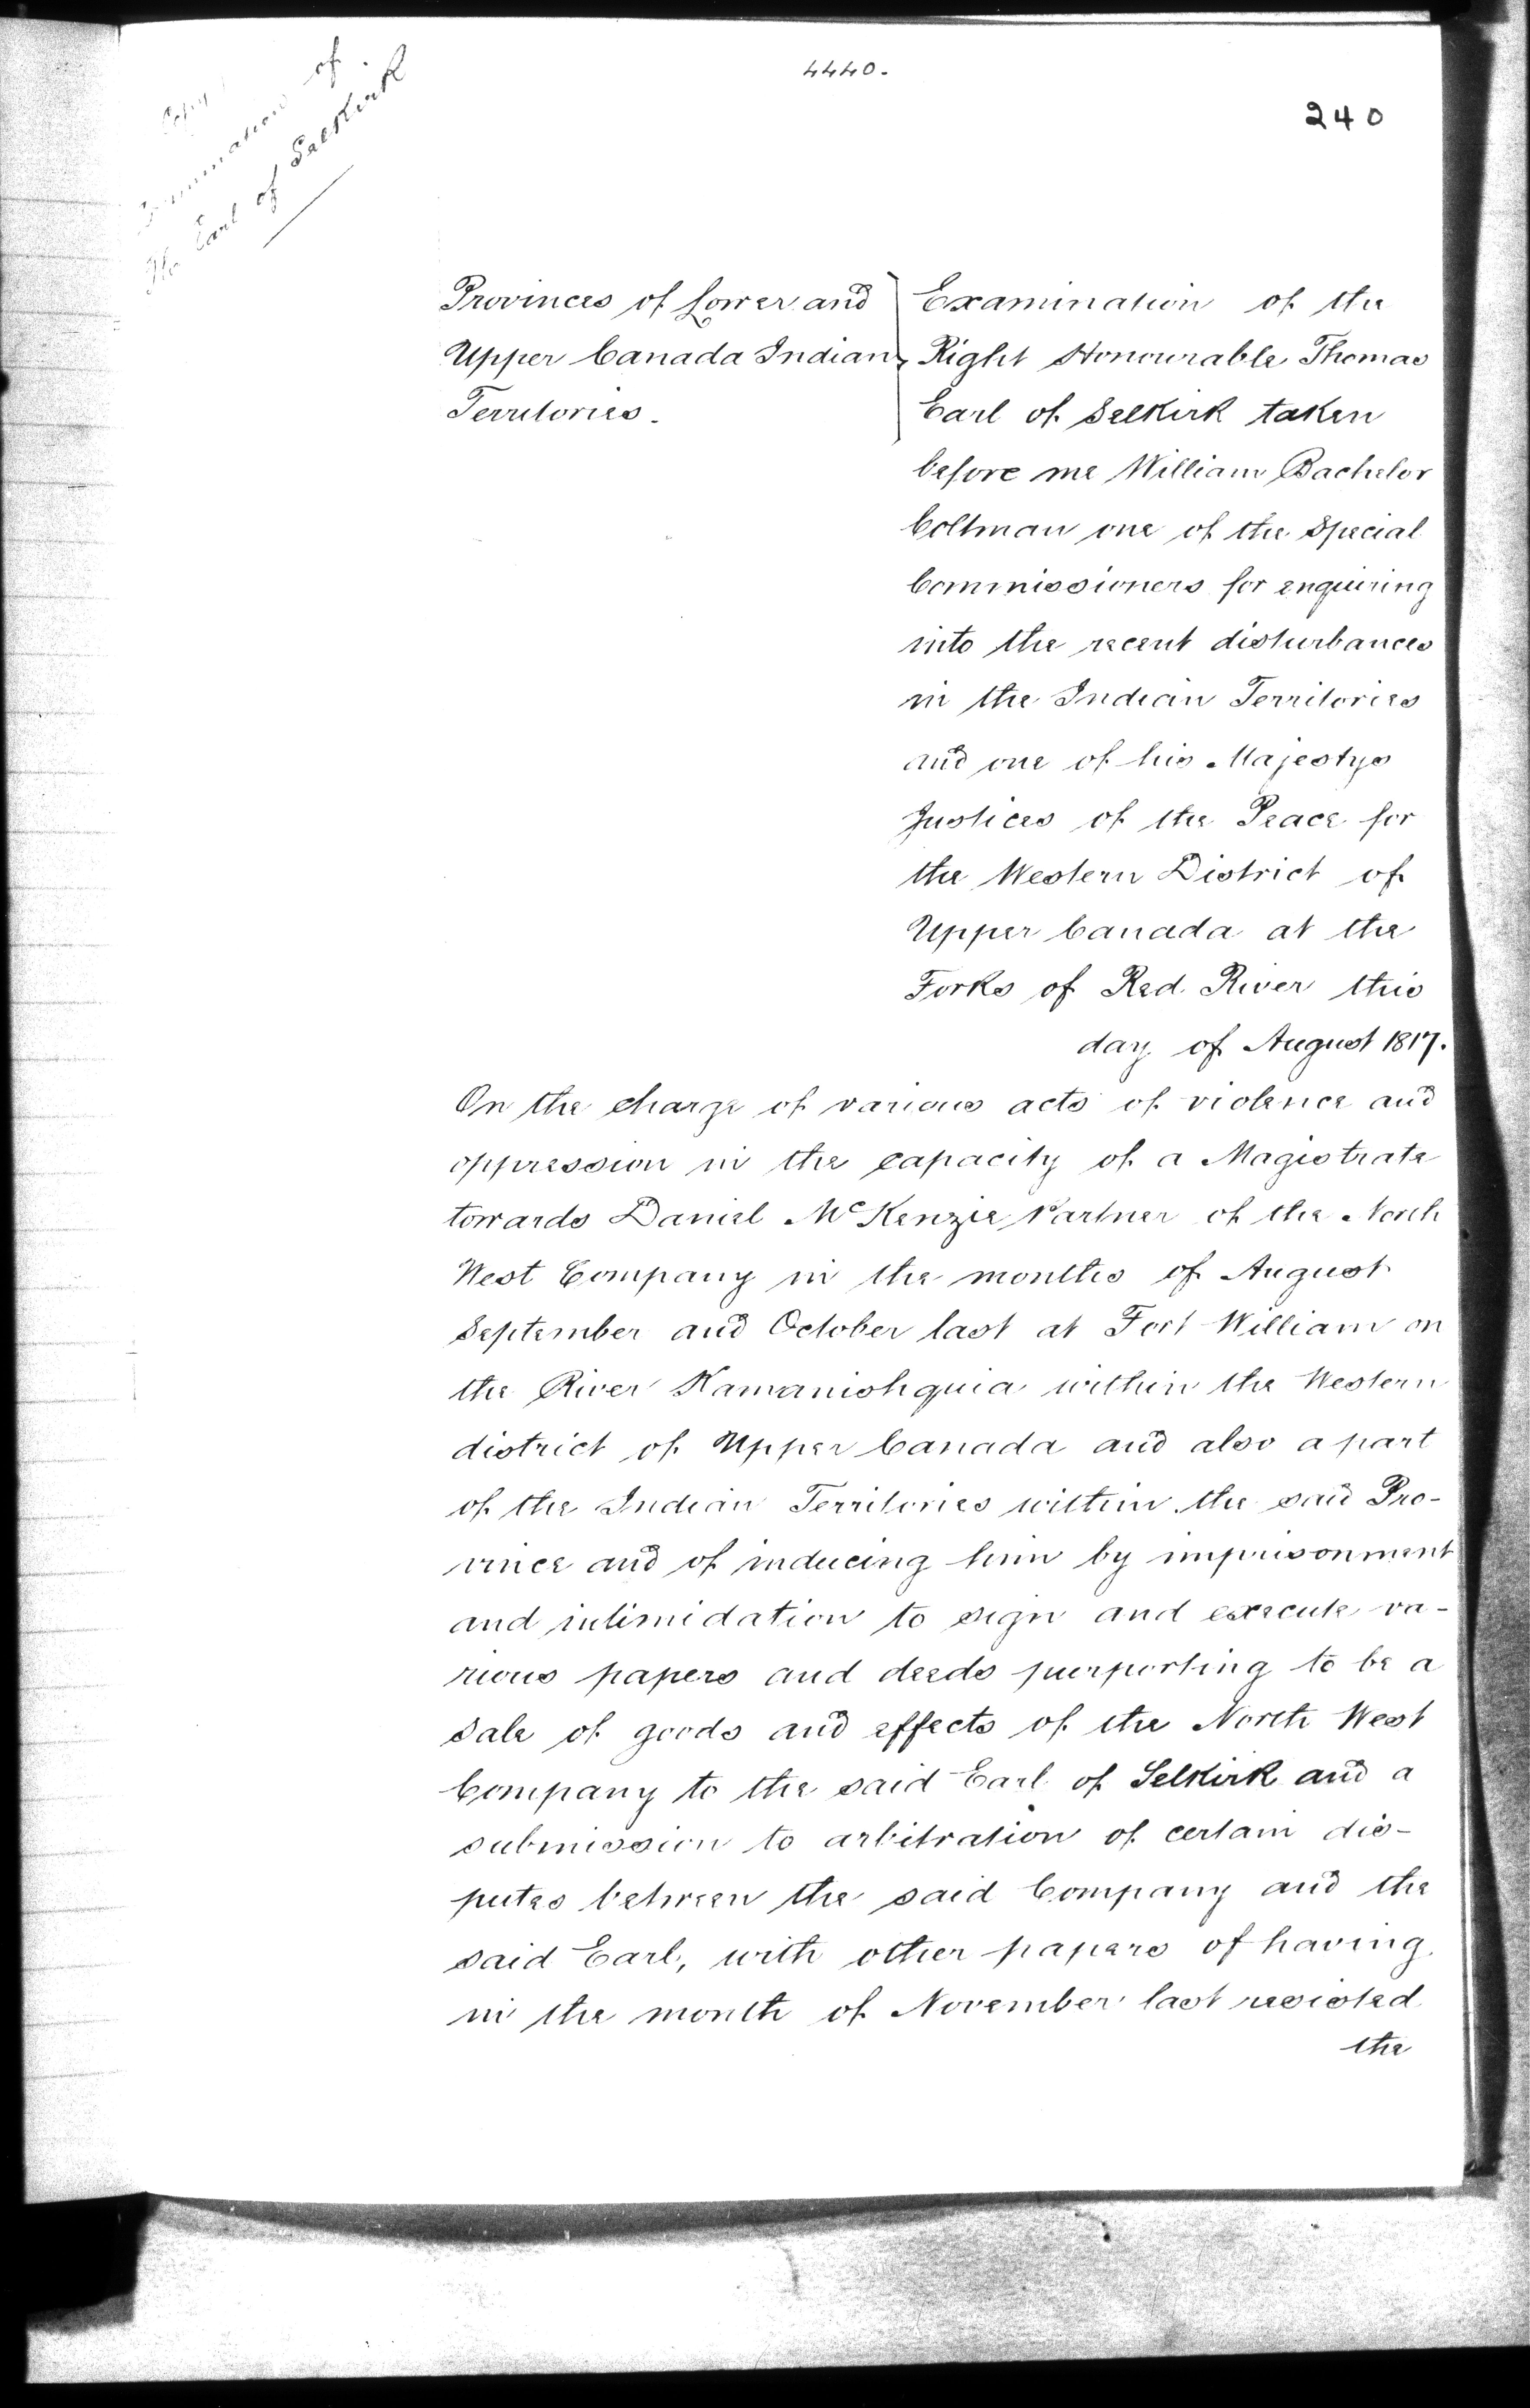 4440.
240
Copy
Examination of
The Earl of Selkirk
Provinces of Lower and
Upper Canada Indian
Territories.
Examination of the
Right Honourable Thomas
Earl of Selkirk taken
before me William Bachelor
Coltman one of the Special
Commissioners for enquiring
into the recent disturbances
in the Indian Territories
and one of his Majestys
Justices of the Peace for
the Western District of
Upper Canada at the
Forks of Red River this
day of August 1817.
On the charge of various acts of violence and
oppression in the capacity of a Magistrate
towards Daniel McKenzie Partner of the North
West Company in the months of August
September and October last at Fort William on
the River Kamanishquia within the Western
district of Upper Canada and also a part
of the Indian Territories within the said Pro-
vince and of inducing him by imprisonment
and intimidation to sign and execute va-
rious papers and deeds purporting to be a
sale of goods and effects of the North West
Company to the said Earl of Selkirk and a
submission to arbitration of certain dis-
putes between the said Company and the
said Earl, with other papers of having
in the month of November last resisted
the